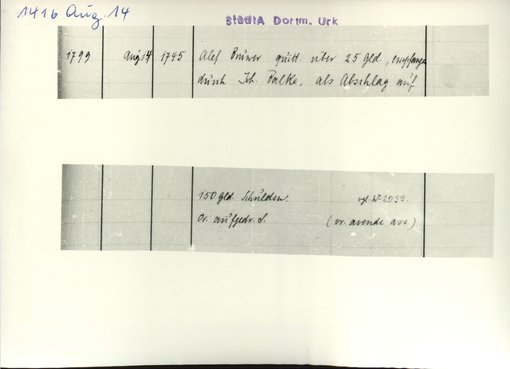 1416 Aug. 14
StadtA Dortm. Urk
1799 Aug 14 1745 Alef Brüwer quitt. über 25 Gld., empfangen
durch Joh. Palke, als Abschlag auf
150 Gld. Schulden. vgl. № 2033.
Or. aufgedr. S. (vr. avende ass.)